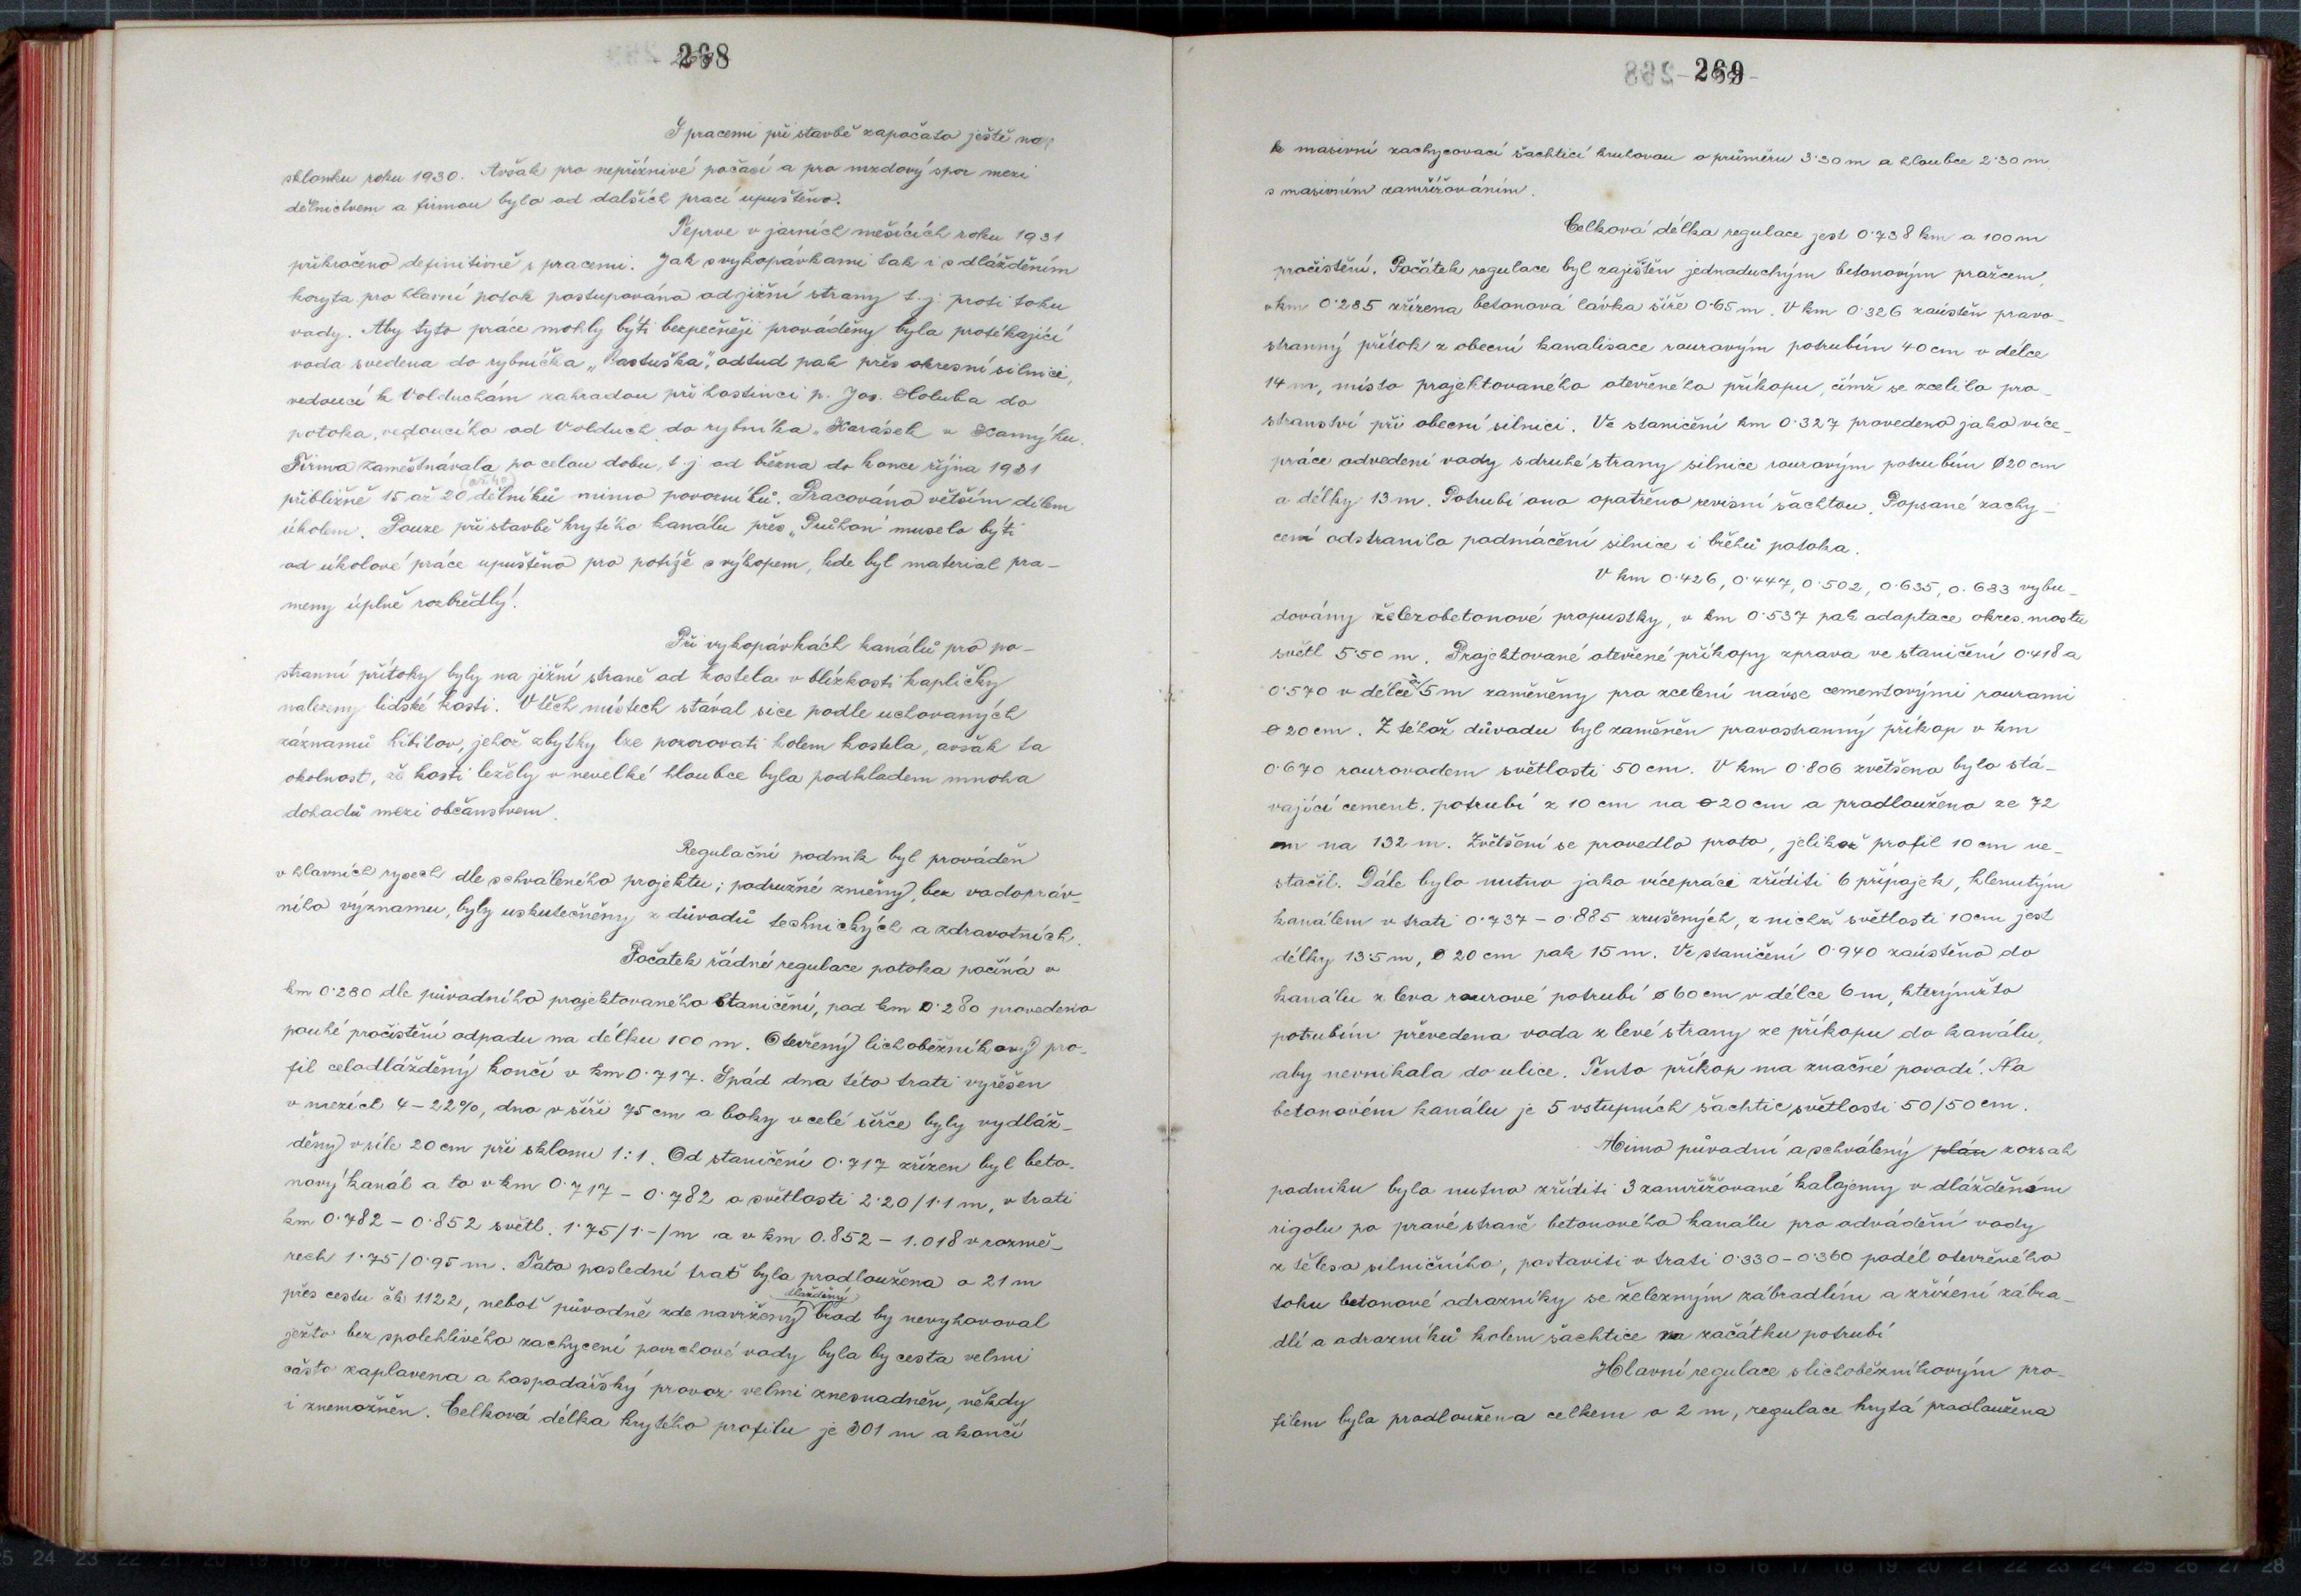 268
S pracemi při stavbě započato ještě na
sklonku roku 1930. Avšak pro nepříznivé počasí a pro mzdový spor mezi
dělnictvem a firmou bylo od dalších prací upuštěno.
Teprve v jarních měsících roku 1931
přikročeno definitivně s pracemi. Jak s vykopávkami tak i s dlážděním
koryta pro hlavní potok postupováno od jižní strany t. j. proti toku
vody. Aby tyto práce mohly býti bezpečněji prováděny byla protékající
voda svedena do rybníčka „Pastuška", odtud pak přes okresní silnici,
vedoucí k Volduchám zahradou při hostinci p. Jos. Holuba do
potoka, vedoucího od Volduch do rybníka „Karásek v Kamýku.
Firma zaměstnávala po celou dobu, t. j. od března do konce října 1931
přibližně 15 až 20 (až 40) dělníků mimo povozníků. Pracováno větším dílem
úkolem. Pouze při stavbě krytého kanálu přes „Průhon" muselo býti
od úkolové práce upuštěno pro potíže s výkopem, kde byl material pra-
meny úplně rozbředlý.
Při vykopávkách kanálů pro po-
stranní přítoky byly na jižní straně od kostela v blízkosti kapličky
nalezeny lidské kosti. V těch místech stával sice podle uchovaných
záznamů hřbitov, jehož zbytky lze pozorovati kolem kostela, avšak ta
okolnost, že kosti ležely v nevelké hloubce byla podkladem mnoha
dohadů mezi občanstvem.
Regulační podnik byl prováděn
v hlavních rysech dle schváleného projektu; podružné změny, bez vodopráv-
ního významu, byly uskutečněny z důvodů technických a zdravotních.
Počátek řádné regulace potoka počíná v
km 0·280 dle původního projektovaného staničení, pod km 0·280 provedeno
pouhé pročistění odpadu na délku 100 m. Otevřený lichoběžníkový pro-
fil celodlážděný končí v km 0·717. Spád dna této trati vyřešen
v mezích 4-22%, dno v šíři 75 cm a boky v celé šířce byly vydláž-
děny v síle 20 cm při sklonu 1:1. Od staničení 0·717 zřízen byl beto-
nový kanál a to v km 0·717 - 0·782 o světlosti 2·20/1·1 m, v trati
km 0·782 - 0·852 světl. 1·75/1·-/m a v km 0.852 - 1.018 v rozmě-
rech 1·75/0·95 m. Tato poslední trať byla prodloužena o 21 m
přes cestu čk 1122, neboť původně zde navržený dlážděný brod by nevyhovoval
ježto bez spolehlivého zachycení povrchové vody byla by cesta velmi
často zaplavena a hospodářský provoz velmi znesnadněn, někdy
i znemožněn. Celková délka krytého profilu je 301 m a končí
269
k masivní zachycovací šachticí kruhovou o průměru 3·30 m a hloubce 2·30 m
s masivním zamřížováním.
Celková délka regulace jest 0·738 km a 100 m
pročistění. Počátek regulace byl zajištěn jednoduchým betonovým pražcem,
v km 0·285 zřízena betonová lávka šíře 0·65 m. V km 0·326 zaústěn pravo-
stranný přítok z obecní kanalisace rourovým potrubím 40 cm v délce
14 m, místo projektovaného otevřeného příkopu, čímž se zcelilo pro-
stranství při obecní silnici. Ve staničení km 0·327 provedeno jako více-
práce odvedení vody s druhé strany silnice rourovým potrubím Ø 20 cm
a délky 13 m. Potrubí ono opatřeno revisní šachtou. Popsané zachy-
cení odstranilo podmáčení silnice i břehů potoka.
V km 0·426, 0·447, 0·502, 0·635, 0.683 vybu-
dovány železobetonové propustky, v km 0·537 pak adaptace okres. mostu
světl 5·50 m. Projektované otevřené příkopy zprava ve staničení 0·418 a
0·570 v délce 5 m zaměněny pro zcelení návse cementovými rourami
Ø 20 cm. Z téhož důvodu byl zaměněn pravostranný příkop v km
0·670 rourovodem světlosti 50 cm. V km 0·806 zvětšeno bylo stá-
vající cement. potrubí z 10 cm na Ø 20 cm a prodlouženo ze 72
m na 132 m. Zvětšení se provedlo proto, jelikož profil 10 cm ne-
stačil. Dále bylo nutno jako vícepráci zříditi 6 přípojek, klenutým
kanálem v trati 0·737 - 0·885 zrušených, z nichž světlosti 10 cm jest
délky 13·5 m, Ø 20 cm pak 15 m. Ve staničení 0·940 zaústěno do
kanálu z leva rourové potrubí Ø 60 cm v délce 6 m, kterýmžto
potrubím převedena voda z levé strany ze příkopu do kanálu,
aby nevnikala do ulice. Tento příkop ma značné povodí. Na
betonovém kanálu je 5 vstupních šachtic světlosti 50/50 cm.
Mimo původní a schválený plán rozsah
podniku bylo nutno zříditi 3 zamřížované kalojemy v dlážděném
rigolu po pravé straně betonového kanálu pro odvádění vody
z tělesa silničního, postaviti v trati 0·330 - 0·360 podél otevřeného
toku betonové odrazníky se železným zábradlím a zřízení zábra-
dlí a odrazníků kolem šachtice na začátku potrubí
Hlavní regulace s lichoběžníkovým pro-
filem byla prodloužena celkem o 2 m, regulace krytá prodloužena